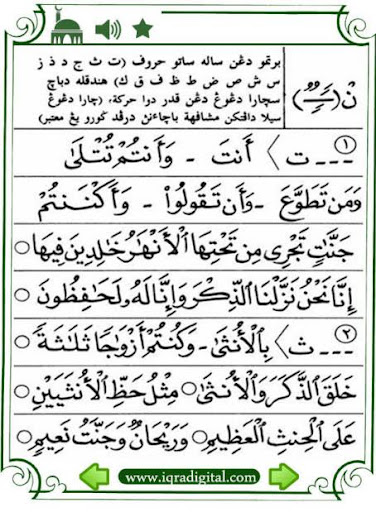 نْ (ــًــٍــٌ)
برتمو دڠن ساله ساتو حروف (ت ث ج د ذ ز
س ش ص ض ط ظ ف ق ك) هندقله دباچ
سچارا دڠوڠ دڠن قدر دوا حركة، (چارا دڠوڠ
سيلا دافتكن مشافهة باچاءن درڤد ڬورو يڠ معتبر)
١ --- ت 〉 أَنتَ - وَأَنتُمْ تُتْلَى
وَمَن تَطَوَّعَ - وَأَن تَقُولُوا۟ - وَأَكْنَنتُمْ
جَنَّٰتٍ تَجْرِى مِن تَحْتِهَا ٱلْأَنْهَٰرُ خَٰلِدِينَ فِيهَا ○
إِنَّا نَحْنُ نَزَّلْنَا ٱلذِّكْرَ وَإِنَّا لَهُۥ لَحَٰفِظُونَ ○
٢ --- ث 〉 بِٱلْأُنثَىٰ - وَكُنتُمْ أَزْوَٰجًا ثَلَٰثَةً
خَلَقَ ٱلذَّكَرَ وَٱلْأُنثَىٰ ○ مِثْلُ حَظِّ ٱلْأُنثَيَيْنِ ○
عَلَى ٱلْحِنثِ ٱلْعَظِيمِ ○ وَرَيْحَانٌ وَجَنَّتُ نَعِيمٍ ○
www.iqradigital.com